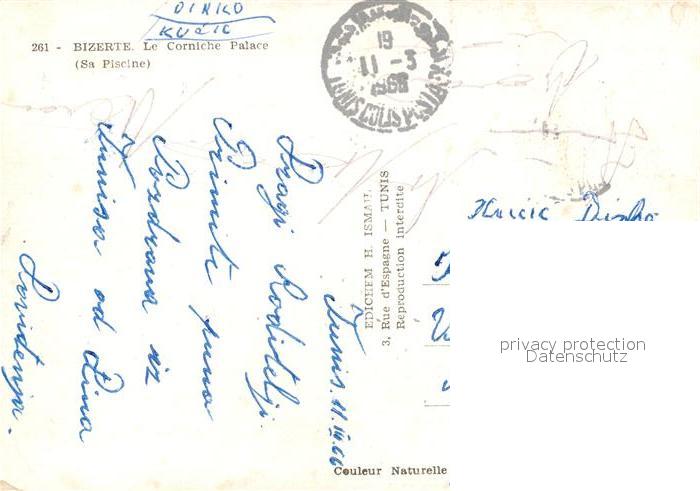 DINKO
KUČIĆ
261 - BIZERTE. Le Corniche Palace
(Sa Piscine)
19
11 - 3
1966
TUNIS COLIS POSTAUX
Tunis. 11.III.66
Dragi Roditelji.
Primite puno
Pozdrava iz
Tunisa od Dina
Dovidenja.
EDICHEM H. ISMAIL
3, Rue d'Espagne — TUNIS
Reproduction interdite
Dinko
privacy protection
Datenschutz
Couleur Naturelle